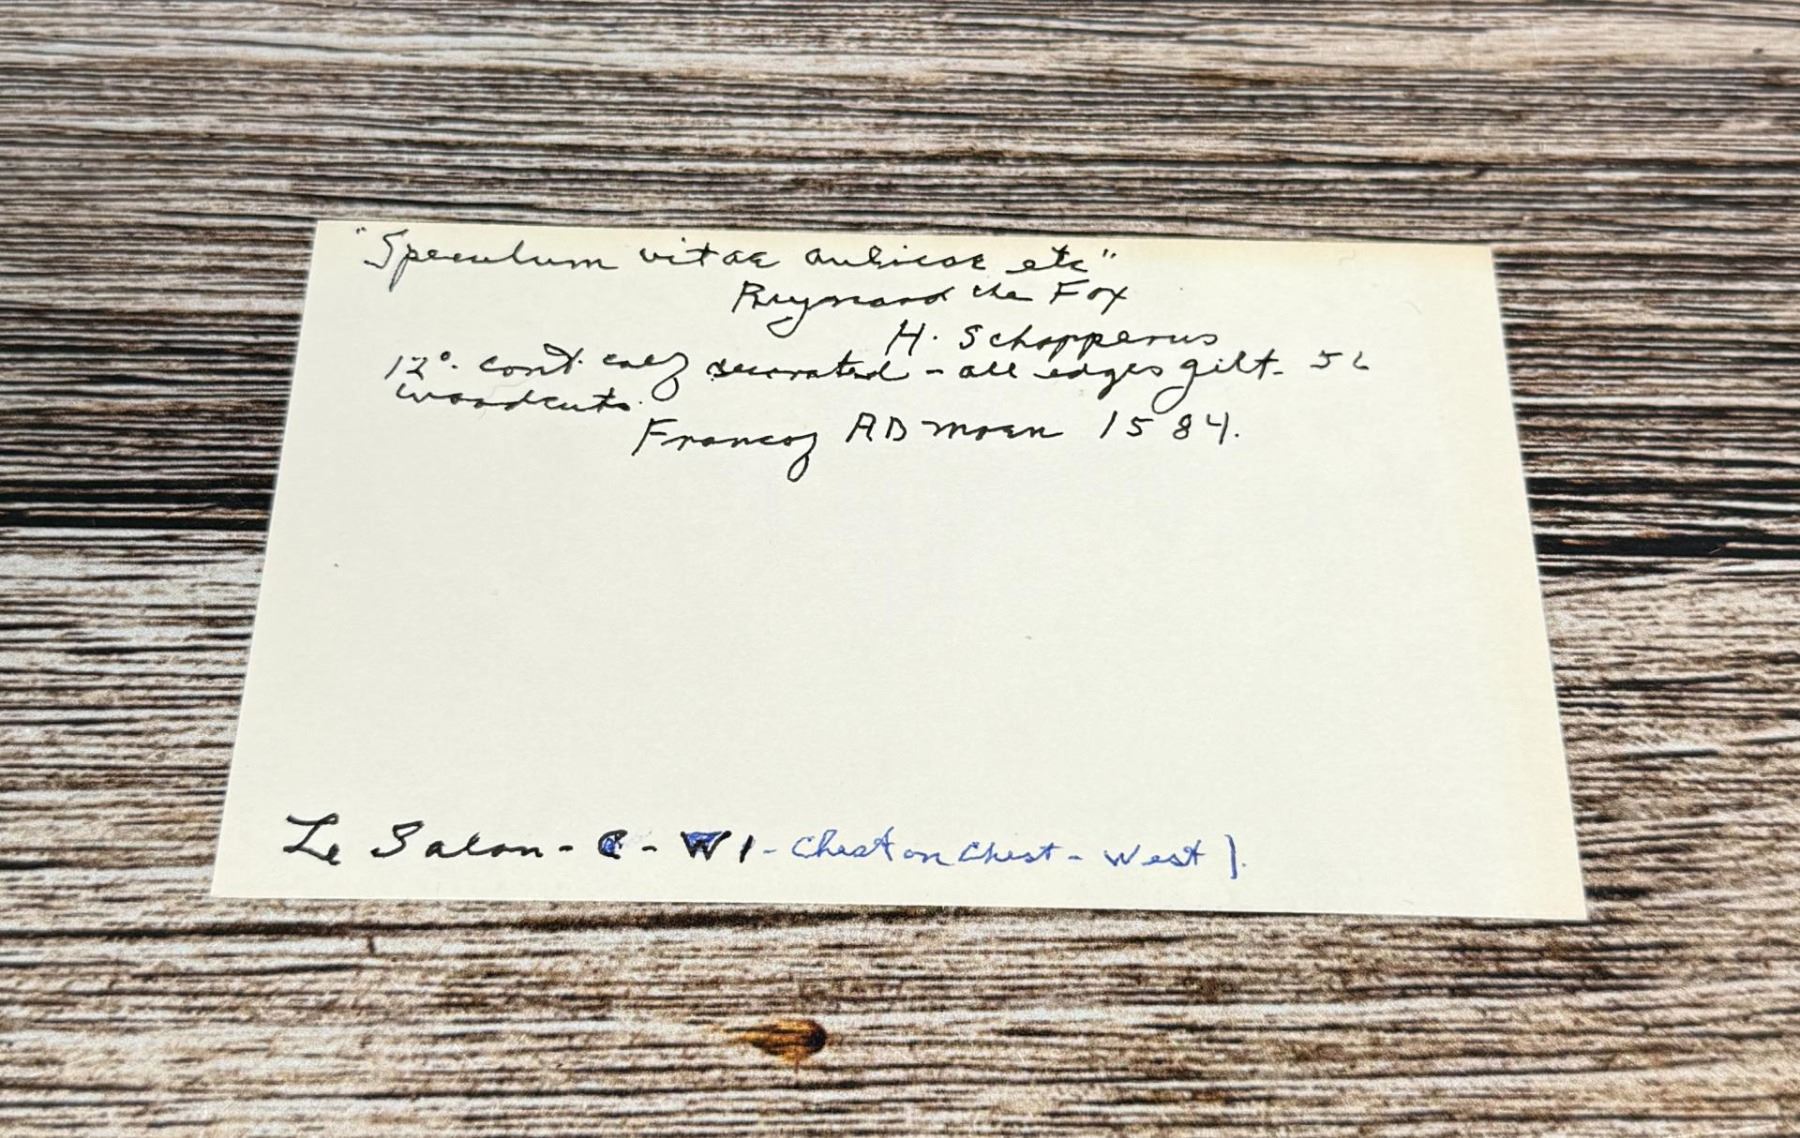 "Speculum vitae aulicae etc"
Reynard the Fox
H. Schopperus
12°. cont. calf decorated - all edges gilt. 56
woodcuts.
Francof AD Moen 1584.
Le Salon - C - W1 - Chest on Chest - West 1.